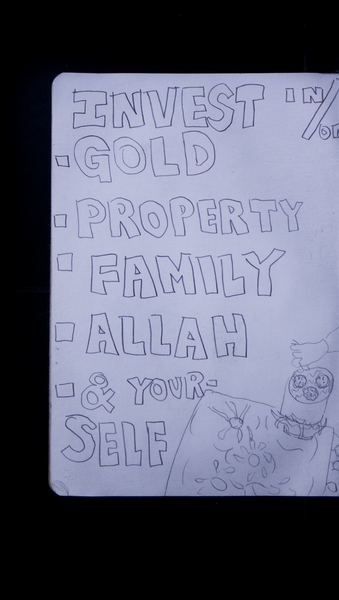 INVEST IN/OR
GOLD
PROPERTY
FAMILY
ALLAH
& YOUR-
SELF